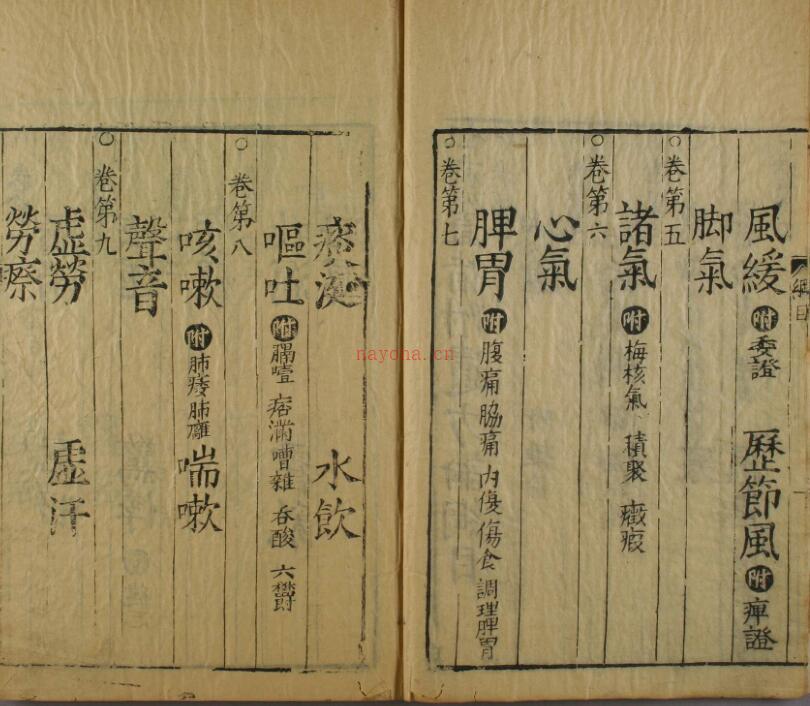 綱目
風緩 附 委證 歷節風 附 痺證
脚氣
○卷第五
諸氣 附 梅核氣 積聚 癥瘕
○卷第六
心氣
脾胃 附 腹痛 脇痛 內傷 傷食 調理脾胃
○卷第七
痰涎 水飲
嘔吐 附 膈噎 痞滿 嘈雜 吞酸 六欝
○卷第八
咳嗽 附 肺痿 肺癰 喘嗽
聲音
○卷第九
虛勞 虛汗
勞瘵
nayona.cn